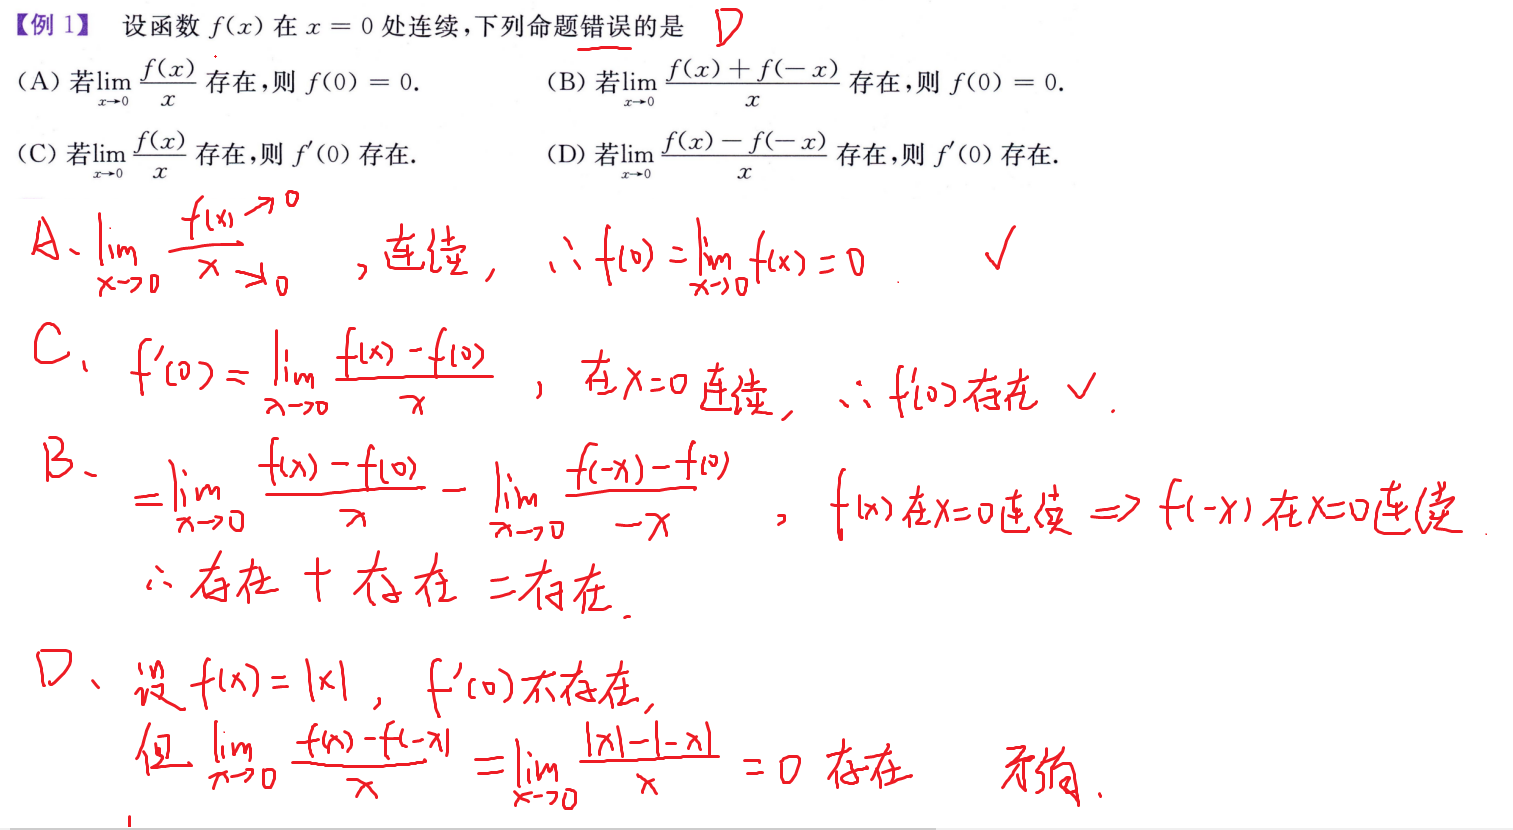 【例 1】 设函数 f(x) 在 x = 0 处连续,下列命题错误的是 D
(A) 若lim_{x→0} f(x)/x 存在,则 f(0) = 0. (B) 若lim_{x→0} (f(x) + f(-x))/x 存在,则 f(0) = 0.
(C) 若lim_{x→0} f(x)/x 存在,则 f′(0) 存在. (D) 若lim_{x→0} (f(x) - f(-x))/x 存在,则 f′(0) 存在.
A、lim_{x→0} f(x)→0 / x→0 , 连续, ∴ f(0) = lim_{x→0} f(x) = 0 . ✓
C、f′(0) = lim_{x→0} (f(x) - f(0))/x , 在x=0连续, ∴ f′(0)存在 ✓.
B、= lim_{x→0} (f(x) - f(0))/x - lim_{x→0} (f(-x) - f(0))/(-x) , f(x)在x=0连续 => f(-x)在x=0连续.
∴ 存在 + 存在 = 存在.
D、设 f(x) = |x| , f′(0)不存在,
但 lim_{x→0} (f(x) - f(-x))/x = lim_{x→0} (|x| - |-x|)/x = 0 存在 矛盾.